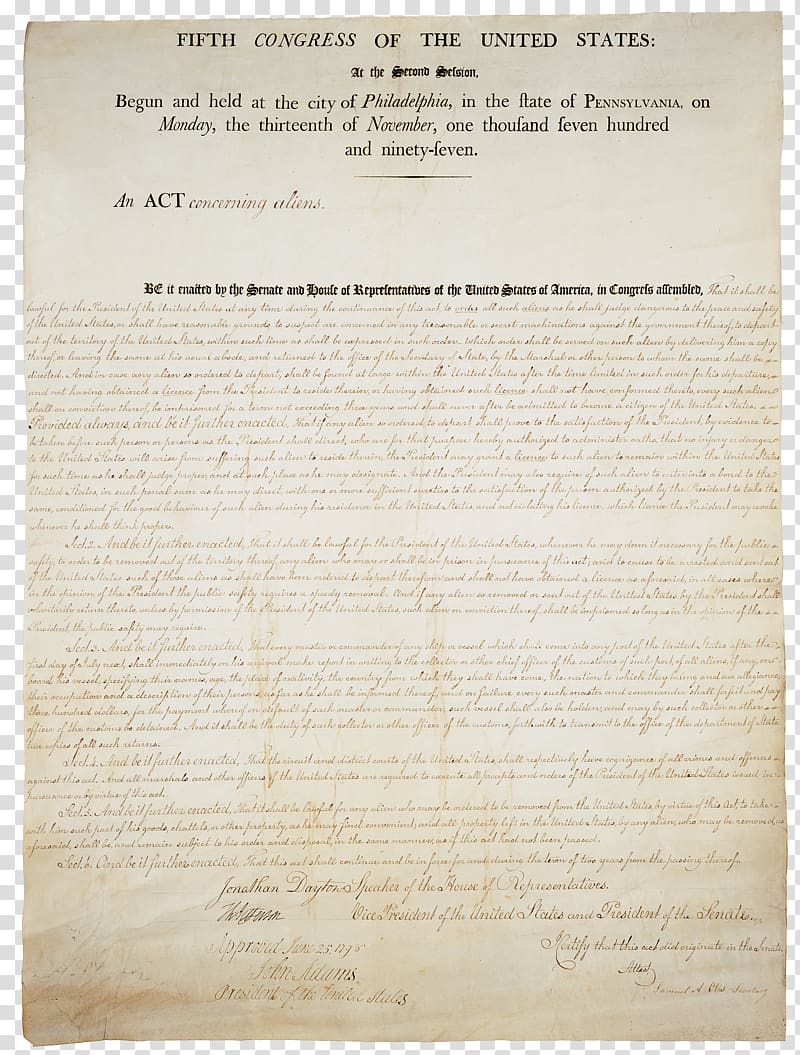 FIFTH CONGRESS OF THE UNITED STATES:
At the Second Session,
Begun and held at the city of Philadelphia, in the ſtate of PENNSYLVANIA, on
Monday, the thirteenth of November, one thouſand ſeven hundred
and ninety-ſeven.
An ACT concerning aliens.
BE it enacted by the Senate and House of Representatives of the United States of America, in Congress assembled, That it shall be
lawful for the President of the United States at any time during the continuance of this act, to order all such aliens as he shall judge dangerous to the peace and safety
of the United States, or shall have reasonable grounds to suspect are concerned in any treasonable or secret machinations against the government thereof, to depart
out of the territory of the United States, within such time as shall be expressed in such order, which order shall be served on such alien by delivering him a copy
thereof, or leaving the same at his usual abode, and returned to the office of the Secretary of State, by the Marshal or other person to whom the same shall be
directed. And in case any alien so ordered to depart, shall be found at large within the United States after the time limited in such order for his departure,
and not having obtained a licence from the President to reside therein, or having obtained such licence shall not have conformed thereto, every such alien
shall on conviction thereof, be imprisoned for a term not exceeding three years and shall never after be admitted to become a citizen of the United States.
Provided always, and be it further enacted, That if any alien so ordered to depart shall prove to the satisfaction of the President, by evidence to
be taken before such person or persons as the President shall direct, who are for that purpose hereby authorized to administer oaths, that no injury or danger
to the United States will arise from suffering such alien to reside therein, the President may grant a licence to such alien to remain within the United States
for such time as he shall judge proper, and at such place as he may designate. And the President may also require of such alien to enter into a bond to the
United States, in such penal sum as he may direct, with one or more sufficient sureties to the satisfaction of the person authorized by the President to take the
same, conditioned for the good behaviour of such alien during his residence in the United States, and not violating his licence, which licence the President may revoke
whenever he shall think proper.
Sect. 2. And be it further enacted, That it shall be lawful for the President of the United States, whenever he may deem it necessary for the public
safety, to order to be removed out of the territory thereof, any alien who may or shall be in prison in pursuance of this act; and to cause to be arrested and sent out
of the United States such of those aliens as shall have been ordered to depart therefrom and shall not have obtained a licence as aforesaid, in all cases where
in the opinion of the President the public safety requires a speedy removal. And if any alien so removed or sent out of the United States by the President shall
voluntarily return thereto, unless by permission of the President of the United States, such alien on conviction thereof, shall be imprisoned so long as in the opinion of the
President, the public safety may require.
Sect. 3. And be it further enacted, That every master or commander of any ship or vessel which shall come into any port of the United States after the
first day of July next, shall immediately on his arrival make report in writing to the collector or other chief officer of the customs of such port, of all aliens, if any, on
board his vessel, specifying their names, age, the place of nativity, the country from which they shall have come, the nation to which they belong and owe allegiance,
their occupation and a description of their persons, as far as he shall be informed thereof, and on failure every such master and commander shall forfeit and pay
three hundred dollars, for the payment whereof on default of such master or commander, such vessel shall also be holden; and may by such collector or other
officer of the customs be detained. And it shall be the duty of such collector or other officer of the customs, forthwith to transmit to the office of the department of State
true copies of all such returns.
Sect. 4. And be it further enacted, That the circuit and district courts of the United States, shall respectively have cognizance of all crimes and offences
against this act. And all marshals and other officers of the United States are required to execute all precepts and orders of the President of the United States issued in
pursuance or by virtue of this act.
Sect. 5. And be it further enacted, That it shall be lawful for any alien who may be ordered to be removed from the United States, by virtue of this Act, to take
with him such part of his goods, chattels, or other property, as he may find convenient; and all property left in the United States, by any alien, who may be removed, as
aforesaid, shall be, and remain subject to his order and disposal, in the same manner, as if this act had not been passed.
Sect. 6. And be it further enacted, That this act shall continue and be in force for and during the term of two years from the passing thereof.
Jonathan Dayton Speaker of the House of Representatives.
Vice President of the United States and President of the Senate.
Approved June 25. 1798
John Adams
President of the United States
I certify that this act did originate in the Senate,
Attest
Samuel A. Otis Secretary